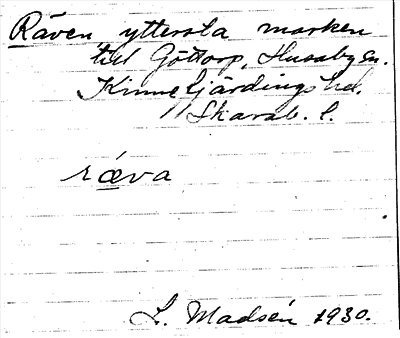 Räven yttersta marken
till Göttorp, Husaby sn.
Kinnefjärdings hd.
Skarab. l.
ræva
L. Madsén 1930.